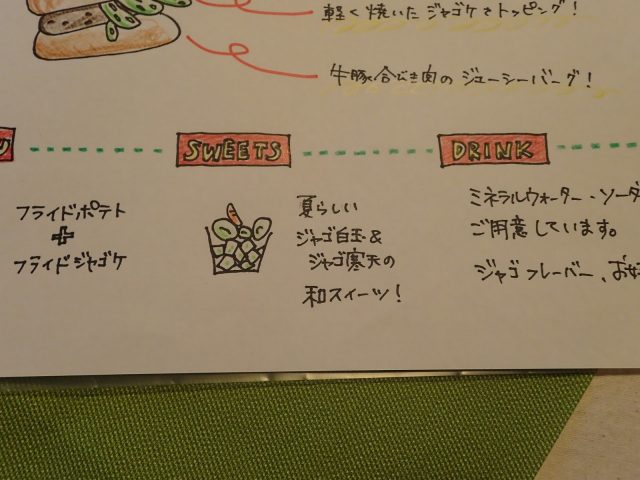 軽く焼いたジャゴケをトッピング!
牛豚合びき肉のジューシーバーグ!
SWEETS
DRINK
フライドポテト
+
フライドジャゴケ
夏らしい
ジャゴ白玉&
ジャゴ寒天の
和スイーツ!
ミネラルウォーター・ソーダ
ご用意しています。
ジャゴフレーバー、お好